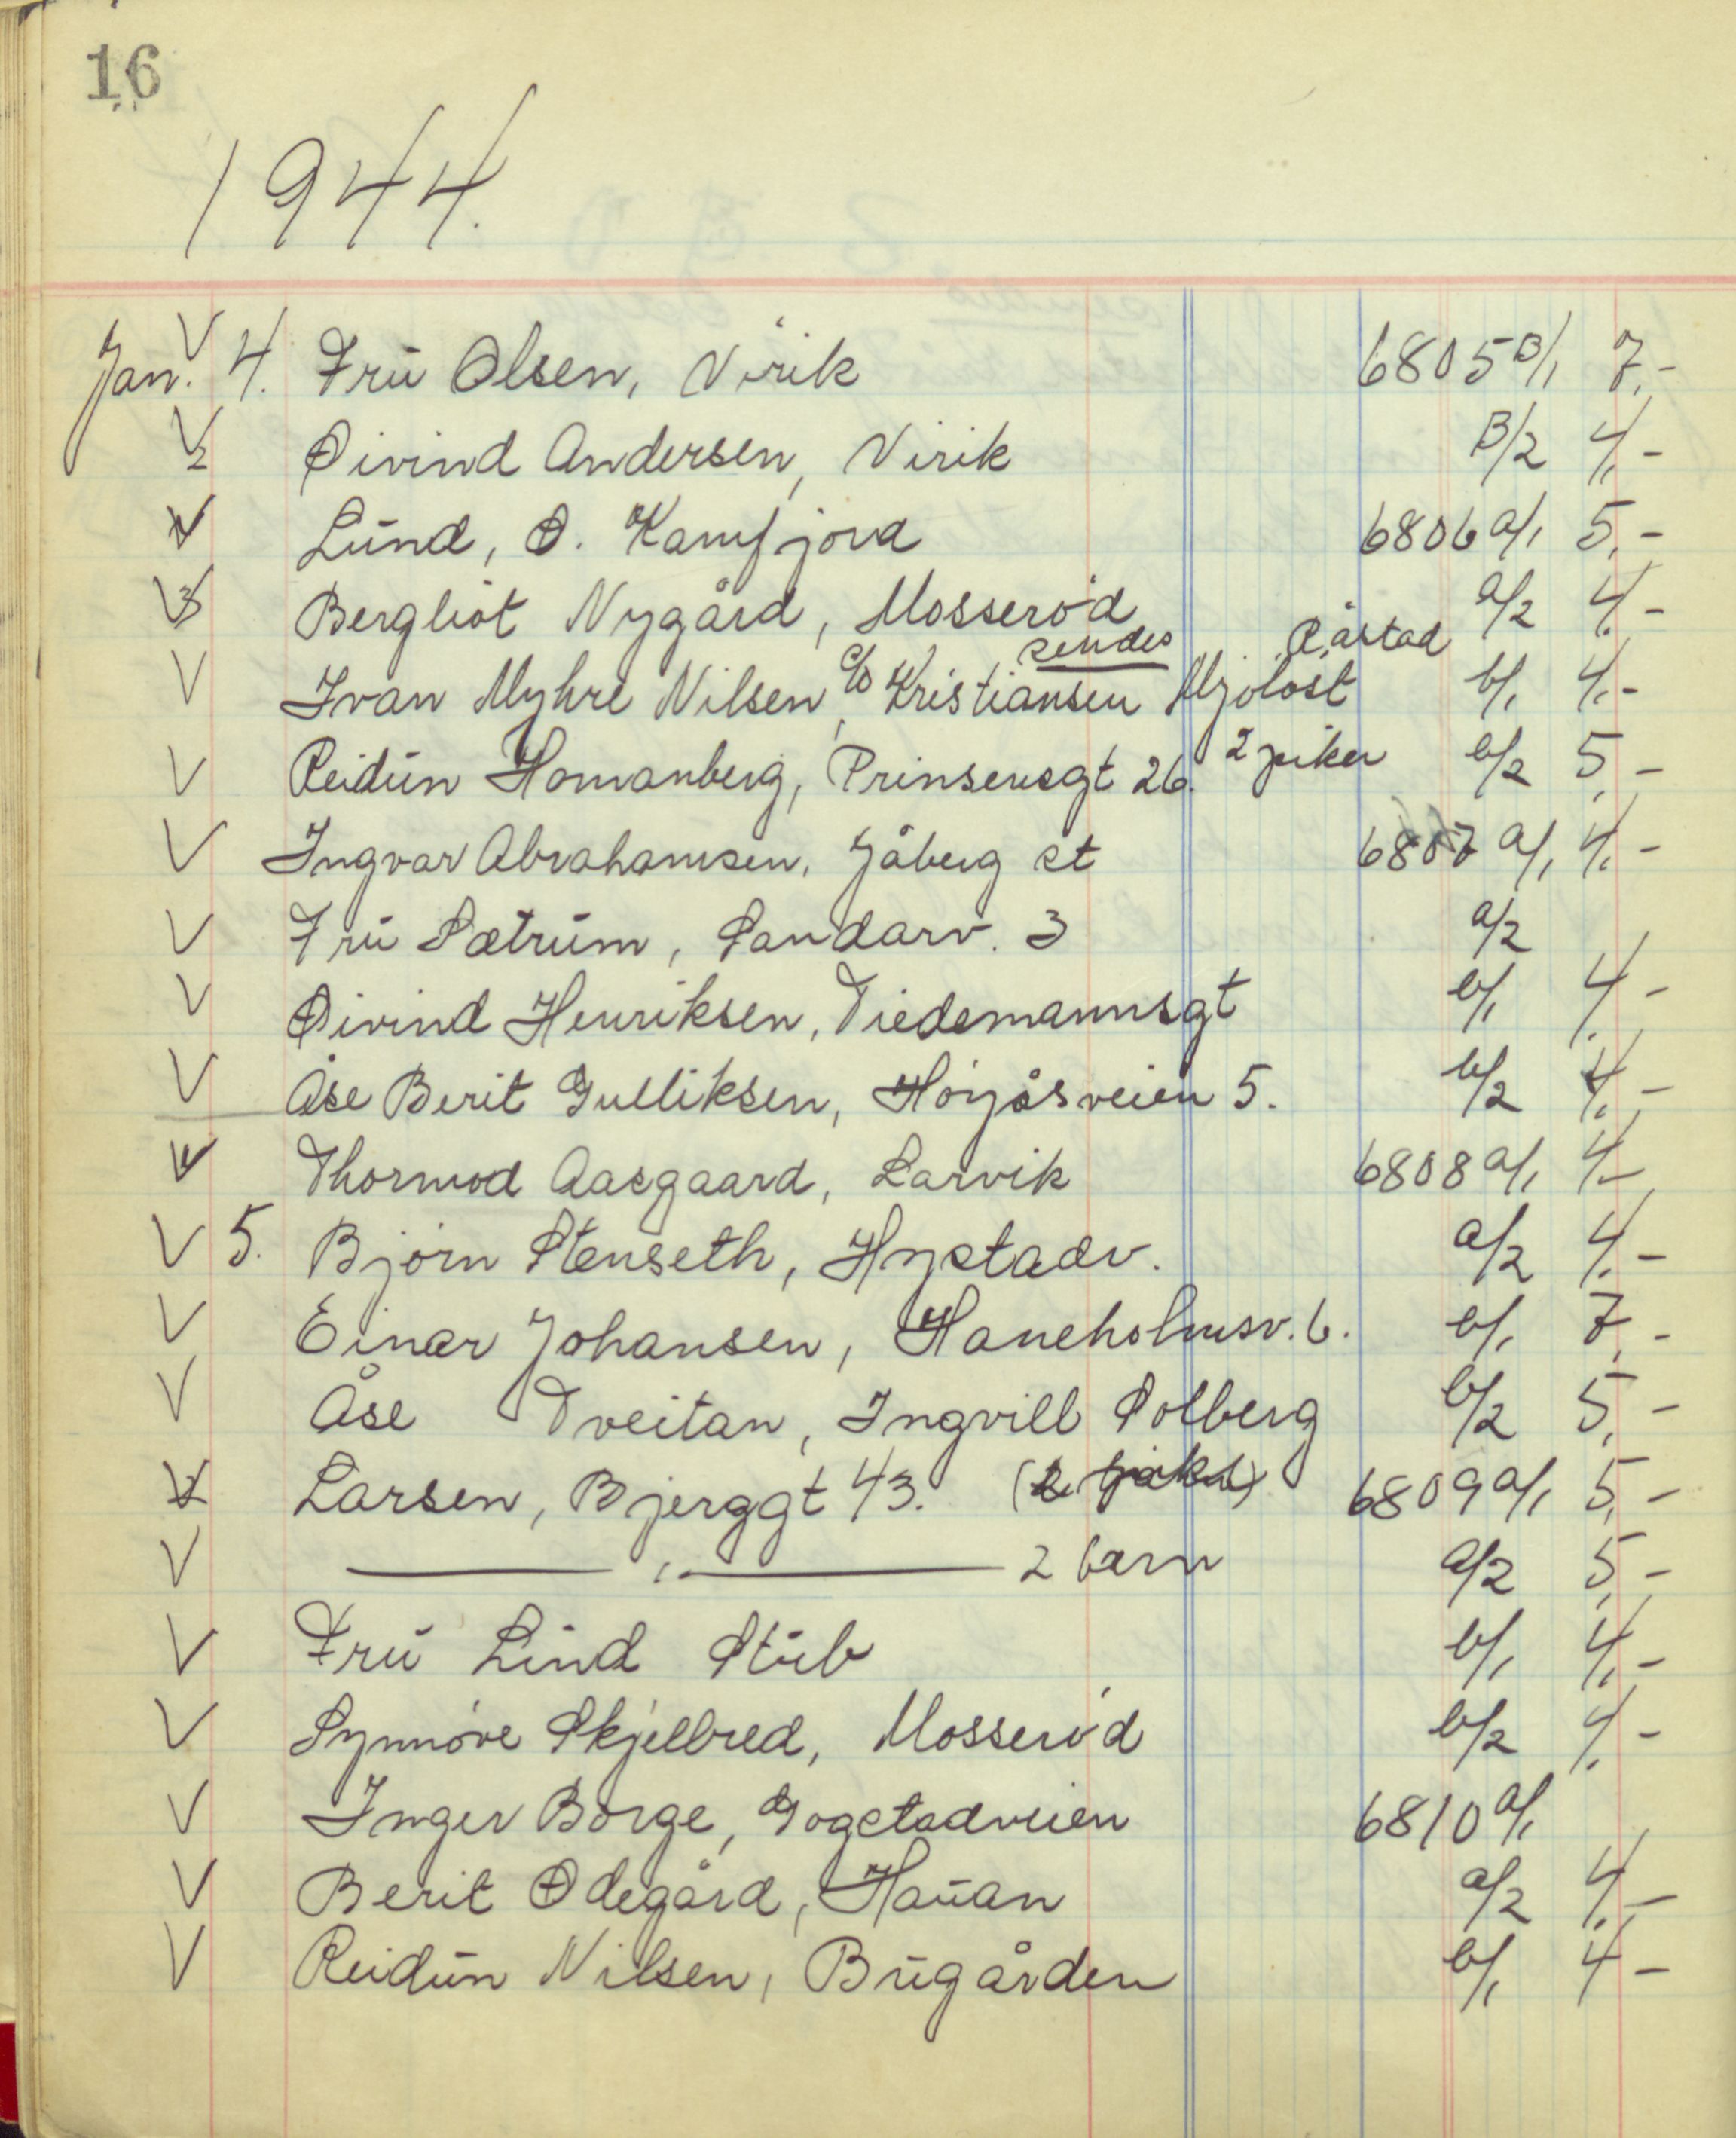 16
1944.
Jan. 4. Frü Olsen, Virik 6805 B/1 7,-
2 Øivind Andersen, Virik B/2 4,-
Lünd, Ø. Kamfjord 6806 a/1 5,-
3 Bergliot Nygård, Mosserød a/2 4,-
sendes Råstad
Ivan Myhre Nilsen, c/o Kristiansen Mjøløst b/1 4,-
Reidün Homanberg, Prinsensgt 26. 2 piker b/2 5,-
Ingvar Abrahamsen, Jåberg st 6807 a/1 4,-
Frü Sætrüm, Sandarv. 3 a/2
Øivind Henriksen, Tiedemannsgt b/1 4,-
Åse Berit Gulliksen, Høyåsveien 5. b/2 4,-
Thormod Aasgaard, Larvik 6808 a/1 4,-
5. Bjørn Stenseth, Hystadv. a/2 4,-
Einar Johansen, Haneholmsv. 6. b/1 7,-
Åse Tveitan, Ingvill Solberg b/2 5,-
Larsen, Bjerggt 43. 6809 a/1 5,-
——— " ——— 2 barn a/2 5,-
Frü Lind Stüb b/1 4,-
Synnøve Skjelbred, Mosserød b/2 4,-
Inger Borge, Gogstadveien 6810 a/1
Berit Ødegård, Haüan a/2 4,-
Reidün Nilsen, Bügården b/1 4-